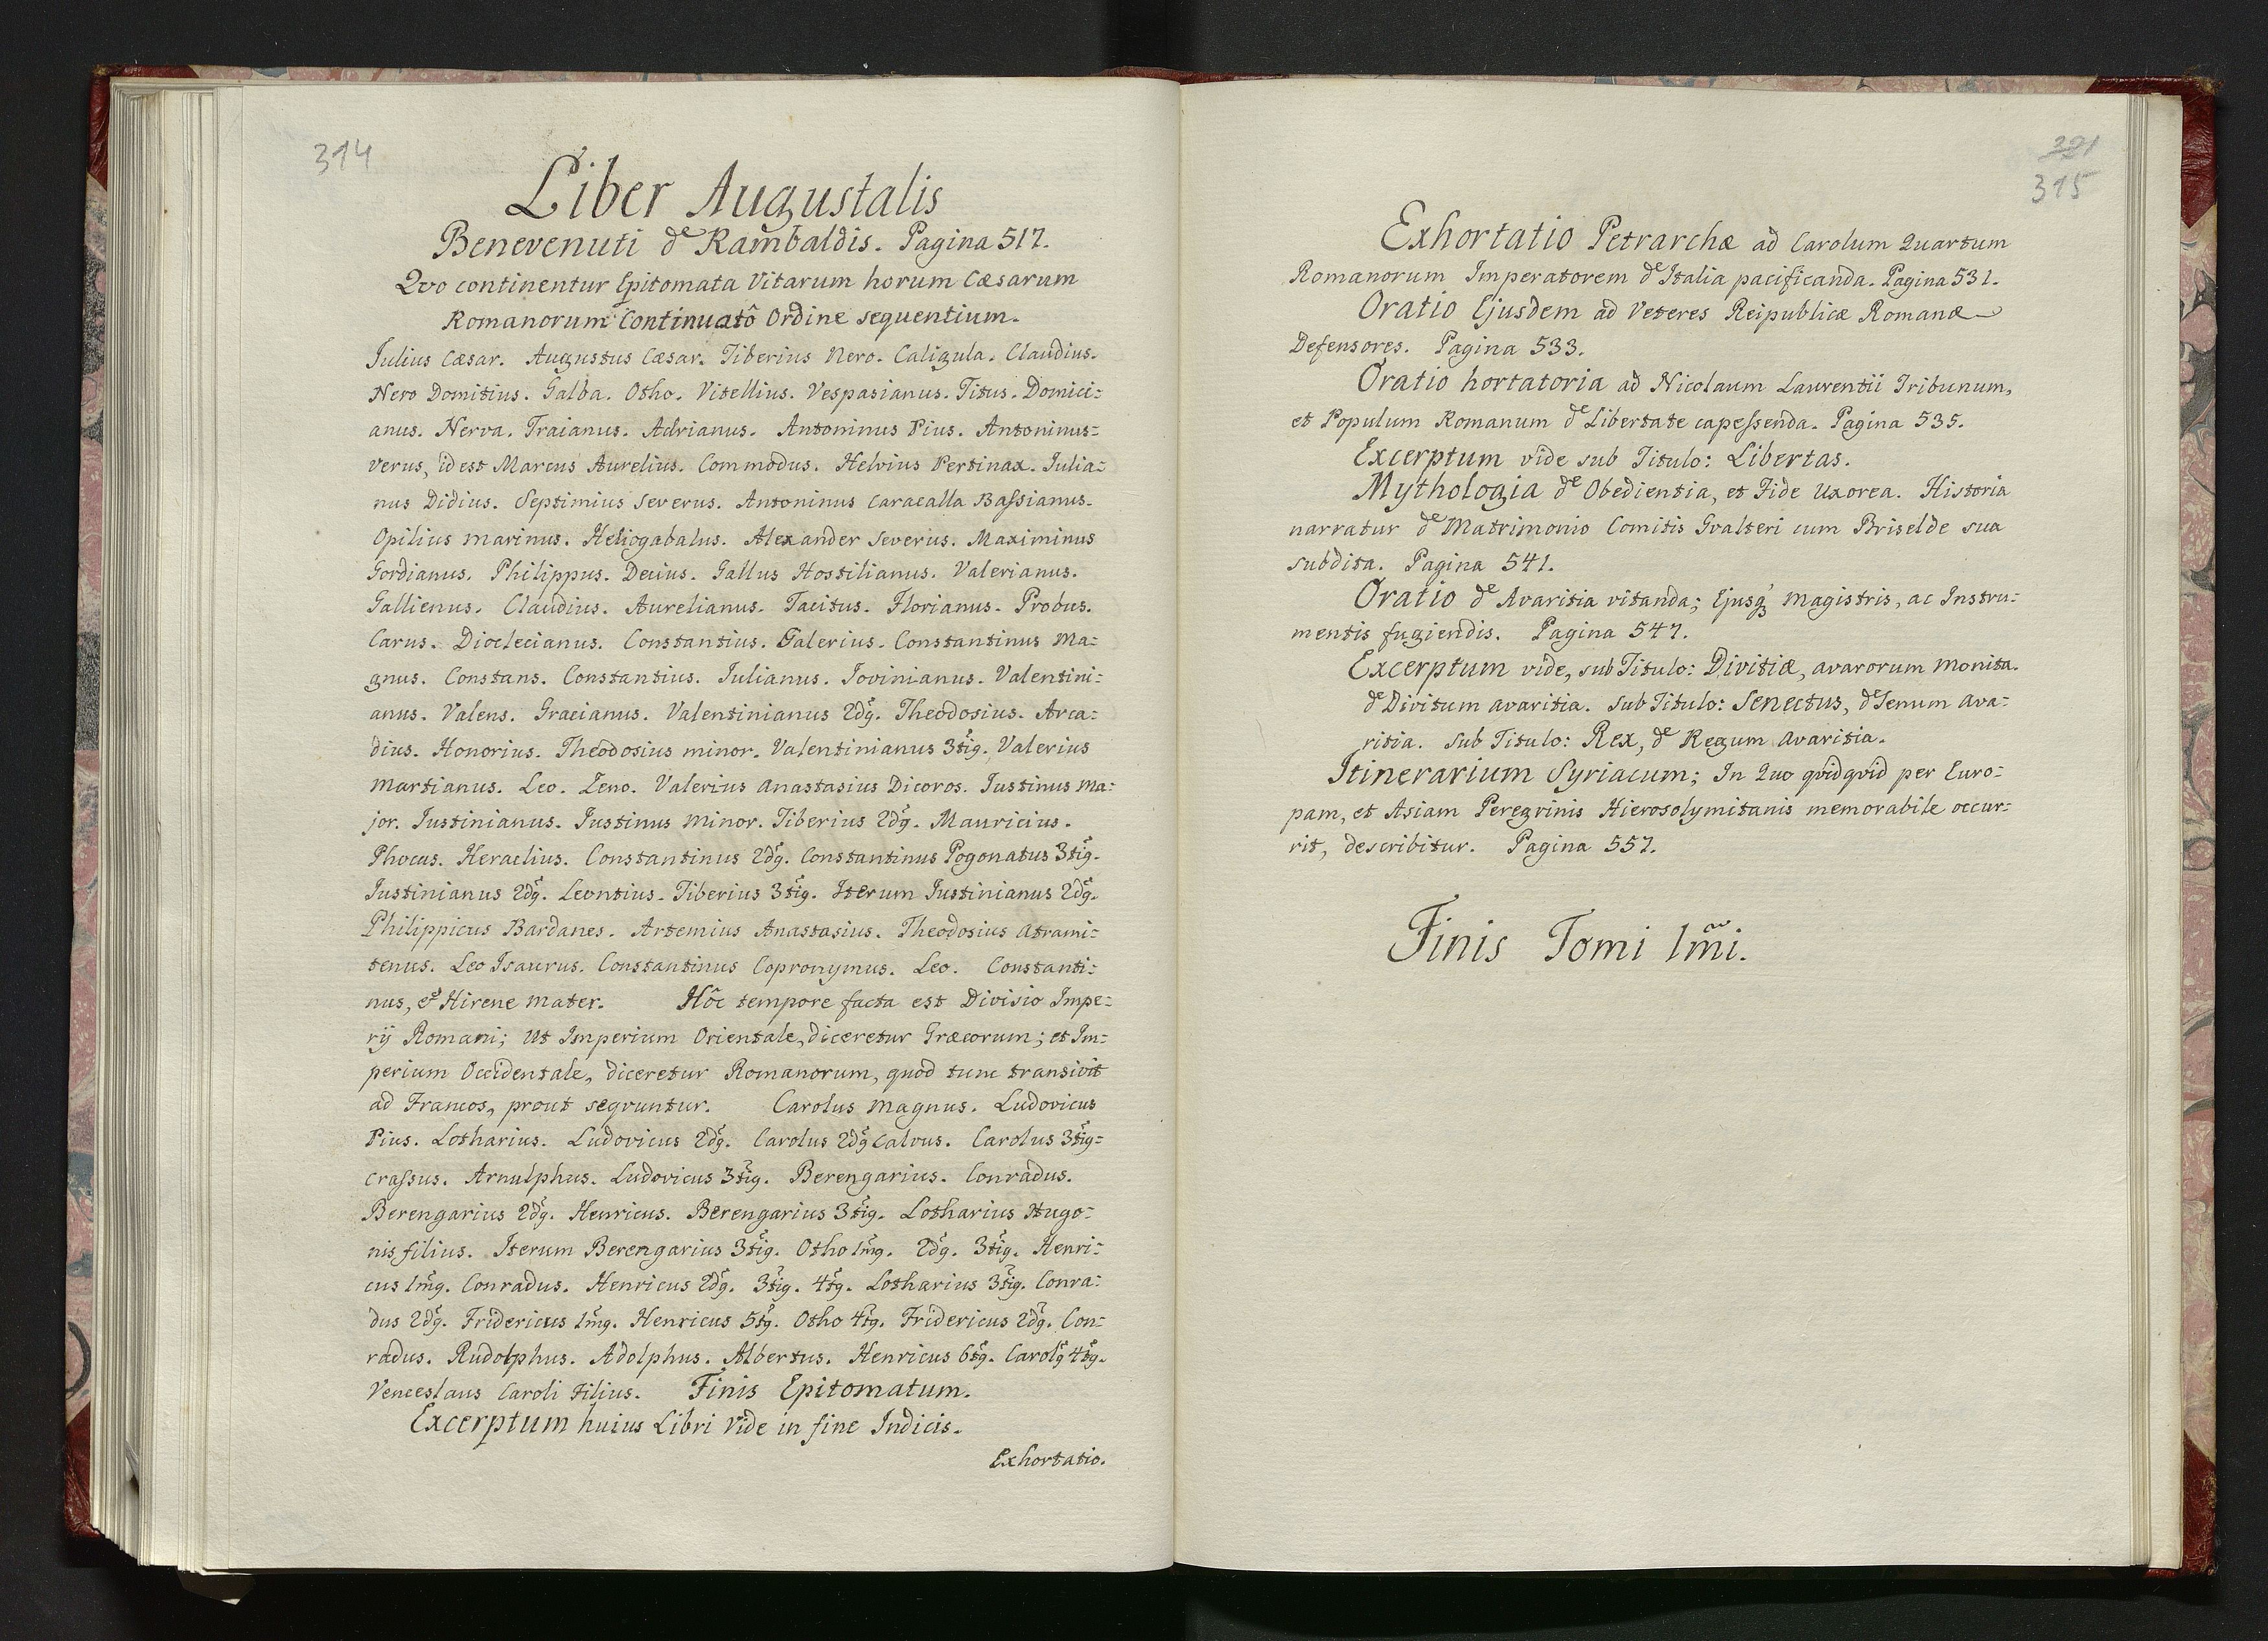 314
Liber Augustalis
Benevenuti de Rambaldis. Pagina 517.
Qvo continentur Epitomata Vitarum horum Cæsarum
Romanorum Continuatô Ordine sequentium.
Iulius Cæsar. Augustus Cæsar. Tiberius Nero. Caligula. Claudius.
Nero Domitius. Galba. Otho. Vitellius. Vespasianus. Titus. Domici:
anus. Nerva. Traianus. Adrianus. Antoninus Pius. Antoninus:
verus, id est Marcus Aurelius. Commodus. Helvius Pertinax. Iulia:
nus Didius. Septimius Severus. Antoninus Caracalla Baſsianus.
Opilius Marinus. Heliogabalus. Alexander Severus. Maximinus
Gordianus. Philippus. Decius. Gallus Hostilianus. Valerianus.
Gallienus. Claudius. Aurelianus. Tacitus. Florianus. Probus.
Carus. Dioclecianus. Constantius. Galerius. Constantinus Ma:
gnus. Constans. Constantius. Iulianus. Iovinianus. Valentini:
anus. Valens. Gracianus. Valentinianus 2dg. Theodosius. Arca:
dius. Honorius. Theodosius minor. Valentinianus 3tig. Valerius
Martianus. Leo. Zeno. Valerius Anastasius Dicoros. Iustinus Ma:
jor. Iustinianus. Iustinus Minor. Tiberius 2dg. Mauricius.
Phocas. Heraclius. Constantinus 2dg. Constantinus Pogonatus 3tig.
Iustinianus 2dg. Leontius. Tiberius 3tig. Iterum Iustinianus 2dg.
Philippicus Bardanes. Artemius Anastasius. Theodosius Atrami:
tenus. Leo Isaurus. Constantinus Copronymus. Leo. Constanti:
nus, et Hirene Mater. Hôc tempore facta est Divisio Impe:
rij Romani; Ut Imperium Orientale, diceretur Græcorum; et Im:
perium Occidentale, diceretur Romanorum, quod tunc transivit
ad Francos, prout seqvuntur. Carolus Magnus. Ludovicus
Pius. Lotharius. Ludovicus 2dg. Carolus 2dg Calvus. Carolus 3tig:
Craſsus. Arnulphus. Ludovicus 3tig. Berengarius. Conradus.
Berengarius 2dg. Henricus. Berengarius 3tig. Lotharius Hugo:
nis filius. Iterum Berengarius 3tig. Otho 1mg. 2dg. 3tig. Henri:
cus 1mg. Conradus. Henricus 2dg. 3tig. 4tg. Lotharius 3tig. Conra:
dus 2dg. Fridericus 1mg. Henricus 5tg. Otho 4tg. Fridericus 2dg. Con:
radus. Rudolphus. Adolphus. Albertus. Henricus 6tg. Carolg 4tg.
Venceslaus Caroli Filius. Finis Epitomatum.
Excerptum huius Libri Vide in fine Indicis.
Exhortatio.
321
315
Exhortatio Petrarchæ ad Carolum Quartum
Romanorum Imperatorem de Italia pacificanda. Pagina 531.
Oratio Ejusdem ad Veteres Reipublicæ Romanæ
Defensores. Pagina 533.
Oratio hortatoria ad Nicolaum Laurentii Tribunum,
et Populum Romanum de Libertate capeſsenda. Pagina 535.
Excerptum vide sub Titulo: Libertas.
Mythologia de Obedientia, et Fide Uxorea. Historia
narratur de Matrimonio Comitis Gvalteri cum Briselde sua
subdita. Pagina 541.
Oratio de Avaritia vitanda; Ejusq; Magistris, ac Instru:
mentis fugiendis. Pagina 547.
Excerptum vide, sub Titulo: Divitiæ, avarorum Monita.
de Divitum avaritia. Sub Titulo: Senectus, de Senum Ava:
ritia. Sub Titulo: Rex, de Regum Avaritia.
Itinerarium Syriacum; In Quo qvidqvid per Euro:
pam, et Asiam Peregrinis Hierosolymitanis memorabile occur:
rit, describitur. Pagina 557.
Finis Tomi 1mi.